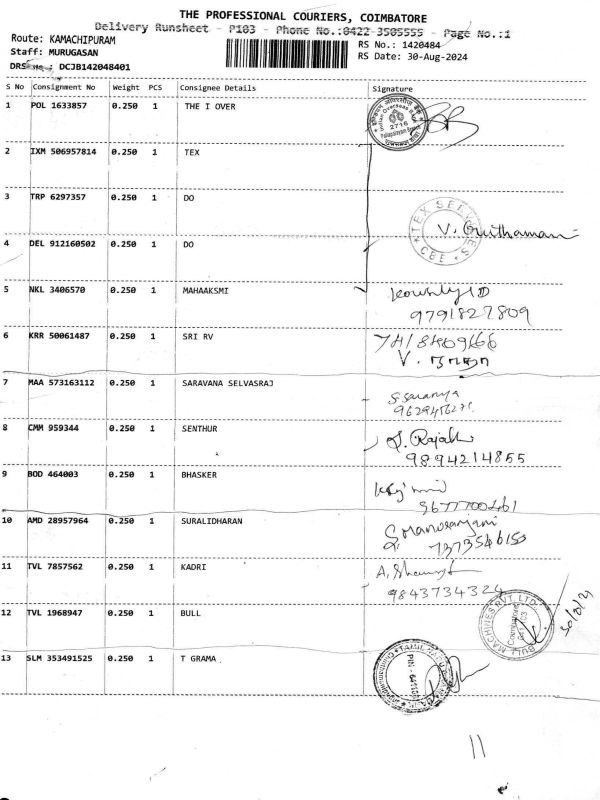 THE PROFESSIONAL COURIERS, COIMBATORE
Delivery Runsheet - P103 - Phone No.:0422-3505555 - Page No.:1
Route: KAMACHIPURAM
RS No.: 1420484
Staff: MURUGASAN
RS Date: 30-Aug-2024
DRS No.: DCJB142048401
S No Consignment No Weight PCS Consignee Details Signature
1 POL 1633857 0.250 1 THE I OVER
2716
2 IXM 506957814 0.250 1 TEX
3 TRP 6297357 0.250 1 DO
TEX SERVICES
CBE
4 DEL 912160502 0.250 1 DO
5 NKL 3406570 0.250 1 MAHAAKSMI
9791827809
6 KRR 50061487 0.250 1 SRI RV
7418409666
7 MAA 573163112 0.250 1 SARAVANA SELVASRAJ
S. Saranya
8 CMM 959344 0.250 1 SENTHUR
9894214855
9 BOD 464003 0.250 1 BHASKER
9677700461
10 AMD 28957964 0.250 1 SURALIDHARAN
7373546150
11 TVL 7857562 0.250 1 KADRI
9843734324
12 TVL 1968947 0.250 1 BULL
BULL MACHINES PVT. LTD.
13 SLM 353491525 0.250 1 T GRAMA
11